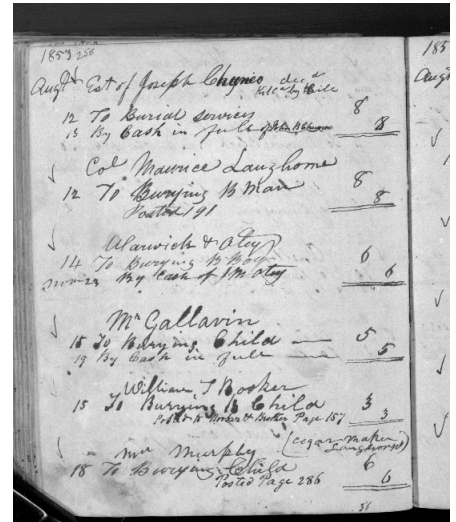 1857 286
Augt Est of Joseph decd
Killed by
12 To Burial Services 8
13 By Cash in full of John 8
Col Maurice Langhorne
12 To Burying B Man 8
Posted 191 8
Warwick & Otey
14 To Burying B Boy 6
Novm 23 By Cash of Otey 6
Mr Gallavin
15 To Burying Child 5
19 By Cash in full 5
William T Booker
15 To Burying B Child 3
Posted to & Booker Page 157 3
Mr Murphy (Cigar-Maker
Langhorne)
18 To Burying Child 6
Posted Page 286 6
36
185
Augt